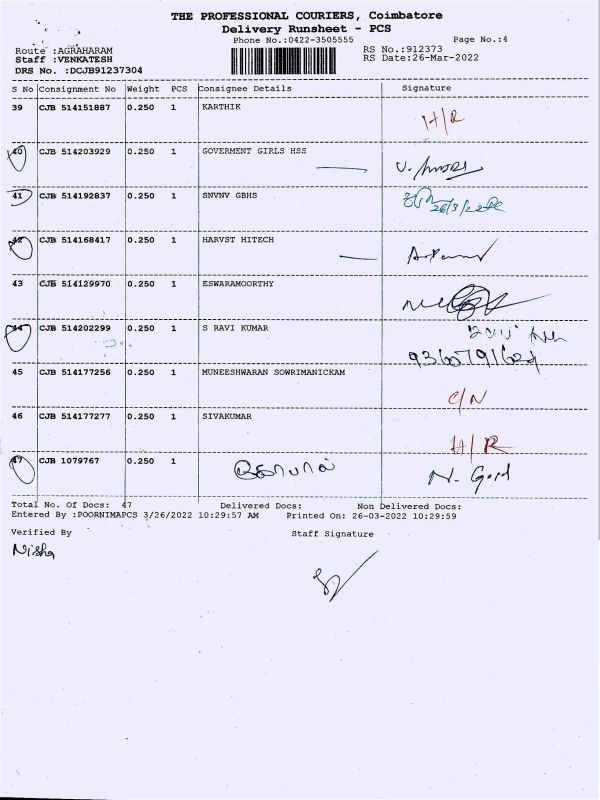 THE PROFESSIONAL COURIERS, Coimbatore
Delivery Runsheet - PCS
Phone No.:0422-3505555 Page No.:4
Route :AGRAHARAM RS No.:912373
Staff :VENKATESH RS Date:26-Mar-2022
DRS No. :DCJB91237304
S No Consignment No Weight PCS Consignee Details Signature
39 CJB 514151887 0.250 1 KARTHIK
H/R
40 CJB 514203929 0.250 1 GOVERMENT GIRLS HSS
41 CJB 514192837 0.250 1 SNVNV GBHS
26/3/22
42 CJB 514168417 0.250 1 HARVST HITECH
43 CJB 514129970 0.250 1 ESWARAMOORTHY
44 CJB 514202299 0.250 1 S RAVI KUMAR
45 CJB 514177256 0.250 1 MUNEESHWARAN SOWRIMANICKAM
C/N
46 CJB 514177277 0.250 1 SIVAKUMAR
H/R
47 CJB 1079767 0.250 1
Total No. Of Docs: 47 Delivered Docs: Non Delivered Docs:
Entered By :POORNIMAPCS 3/26/2022 10:29:57 AM Printed On: 26-03-2022 10:29:59
Verified By Staff Signature
Nisha